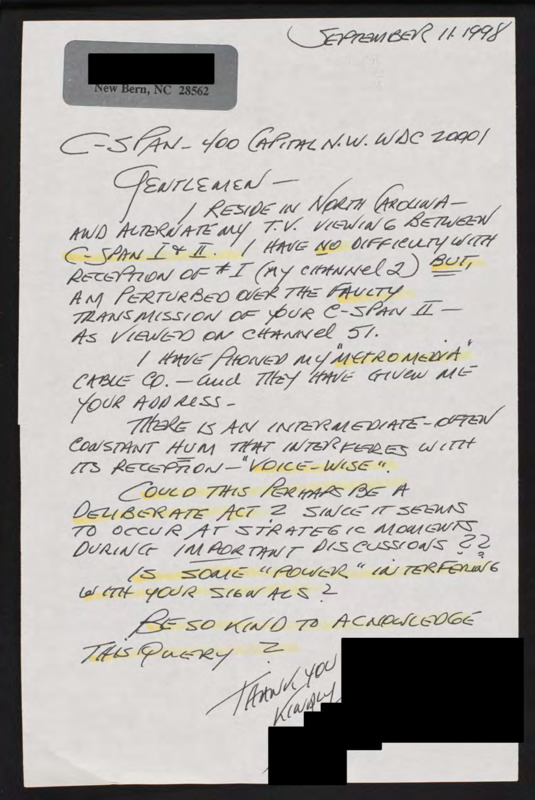 SEPTEMBER 11. 1998
New Bern, NC 28562
C-SPAN - 400 CAPITAL N.W. WDC 20001
GENTLEMEN -
I RESIDE IN NORTH CAROLINA -
AND ALTERNATE MY T.V. VIEWING BETWEEN
C-SPAN I & II. I HAVE NO DIFFICULTY WITH
RECEPTION OF #I (MY CHANNEL 2) BUT,
AM PERTURBED OVER THE FAULTY
TRANSMISSION OF YOUR C-SPAN II -
AS VIEWED ON CHANNEL 51.
I HAVE PHONED MY "METROMEDIA"
CABLE CO. - and THEY HAVE GIVEN ME
YOUR ADDRESS -
THERE IS AN INTERMEDIATE - OFTEN
CONSTANT HUM THAT INTERFERES WITH
ITS RECEPTION - "VOICE-WISE".
COULD THIS PERHAPS BE A
DELIBERATE ACT ? SINCE IT SEEMS
TO OCCUR AT STRATEGIC MOMENTS
DURING IMPORTANT DISCUSSIONS ??
IS SOME "POWER" INTERFERING
WITH YOUR SIGNALS ?
BE SO KIND TO ACKNOWLEDGE
THIS QUERY ?
THANK YOU
KINDLY